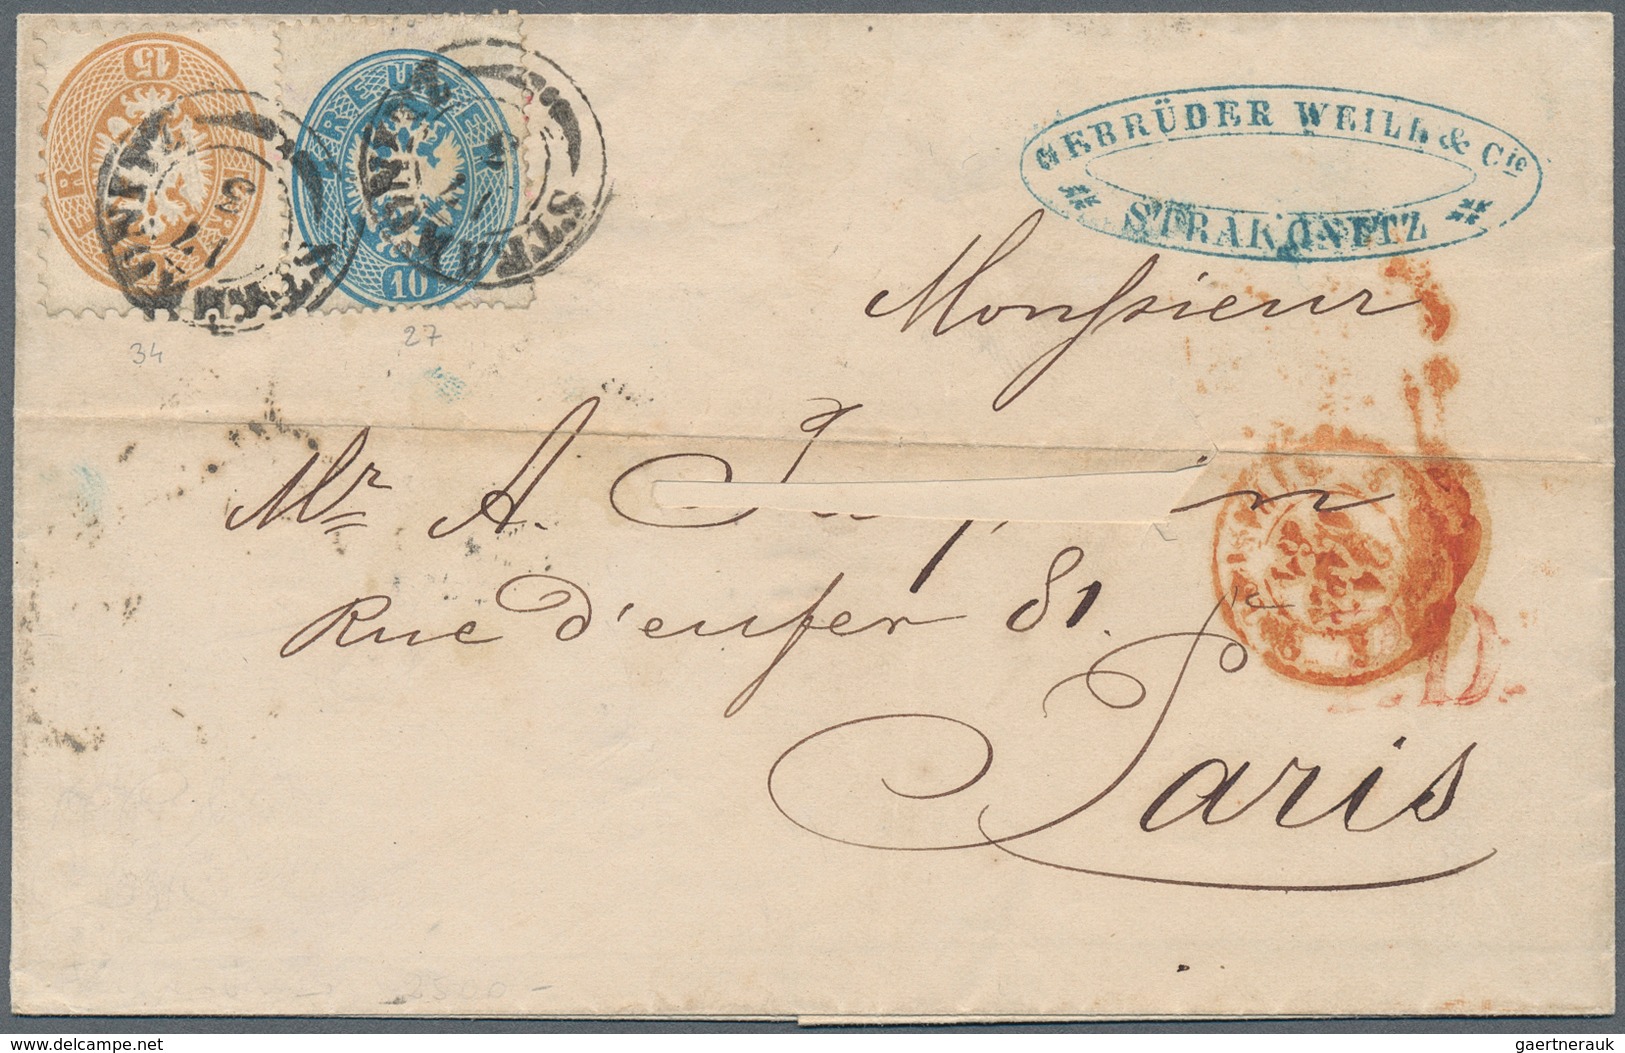 15
KREUZER
10
GEBRÜDER WEILL & Cie
STRAKONITZ
STRAKONITZ
STRAKONITZ
34
27
Monsieur
Mr A.
Rue d'enfer 81.
Paris
P.D.
2500 -
gaertnerauk